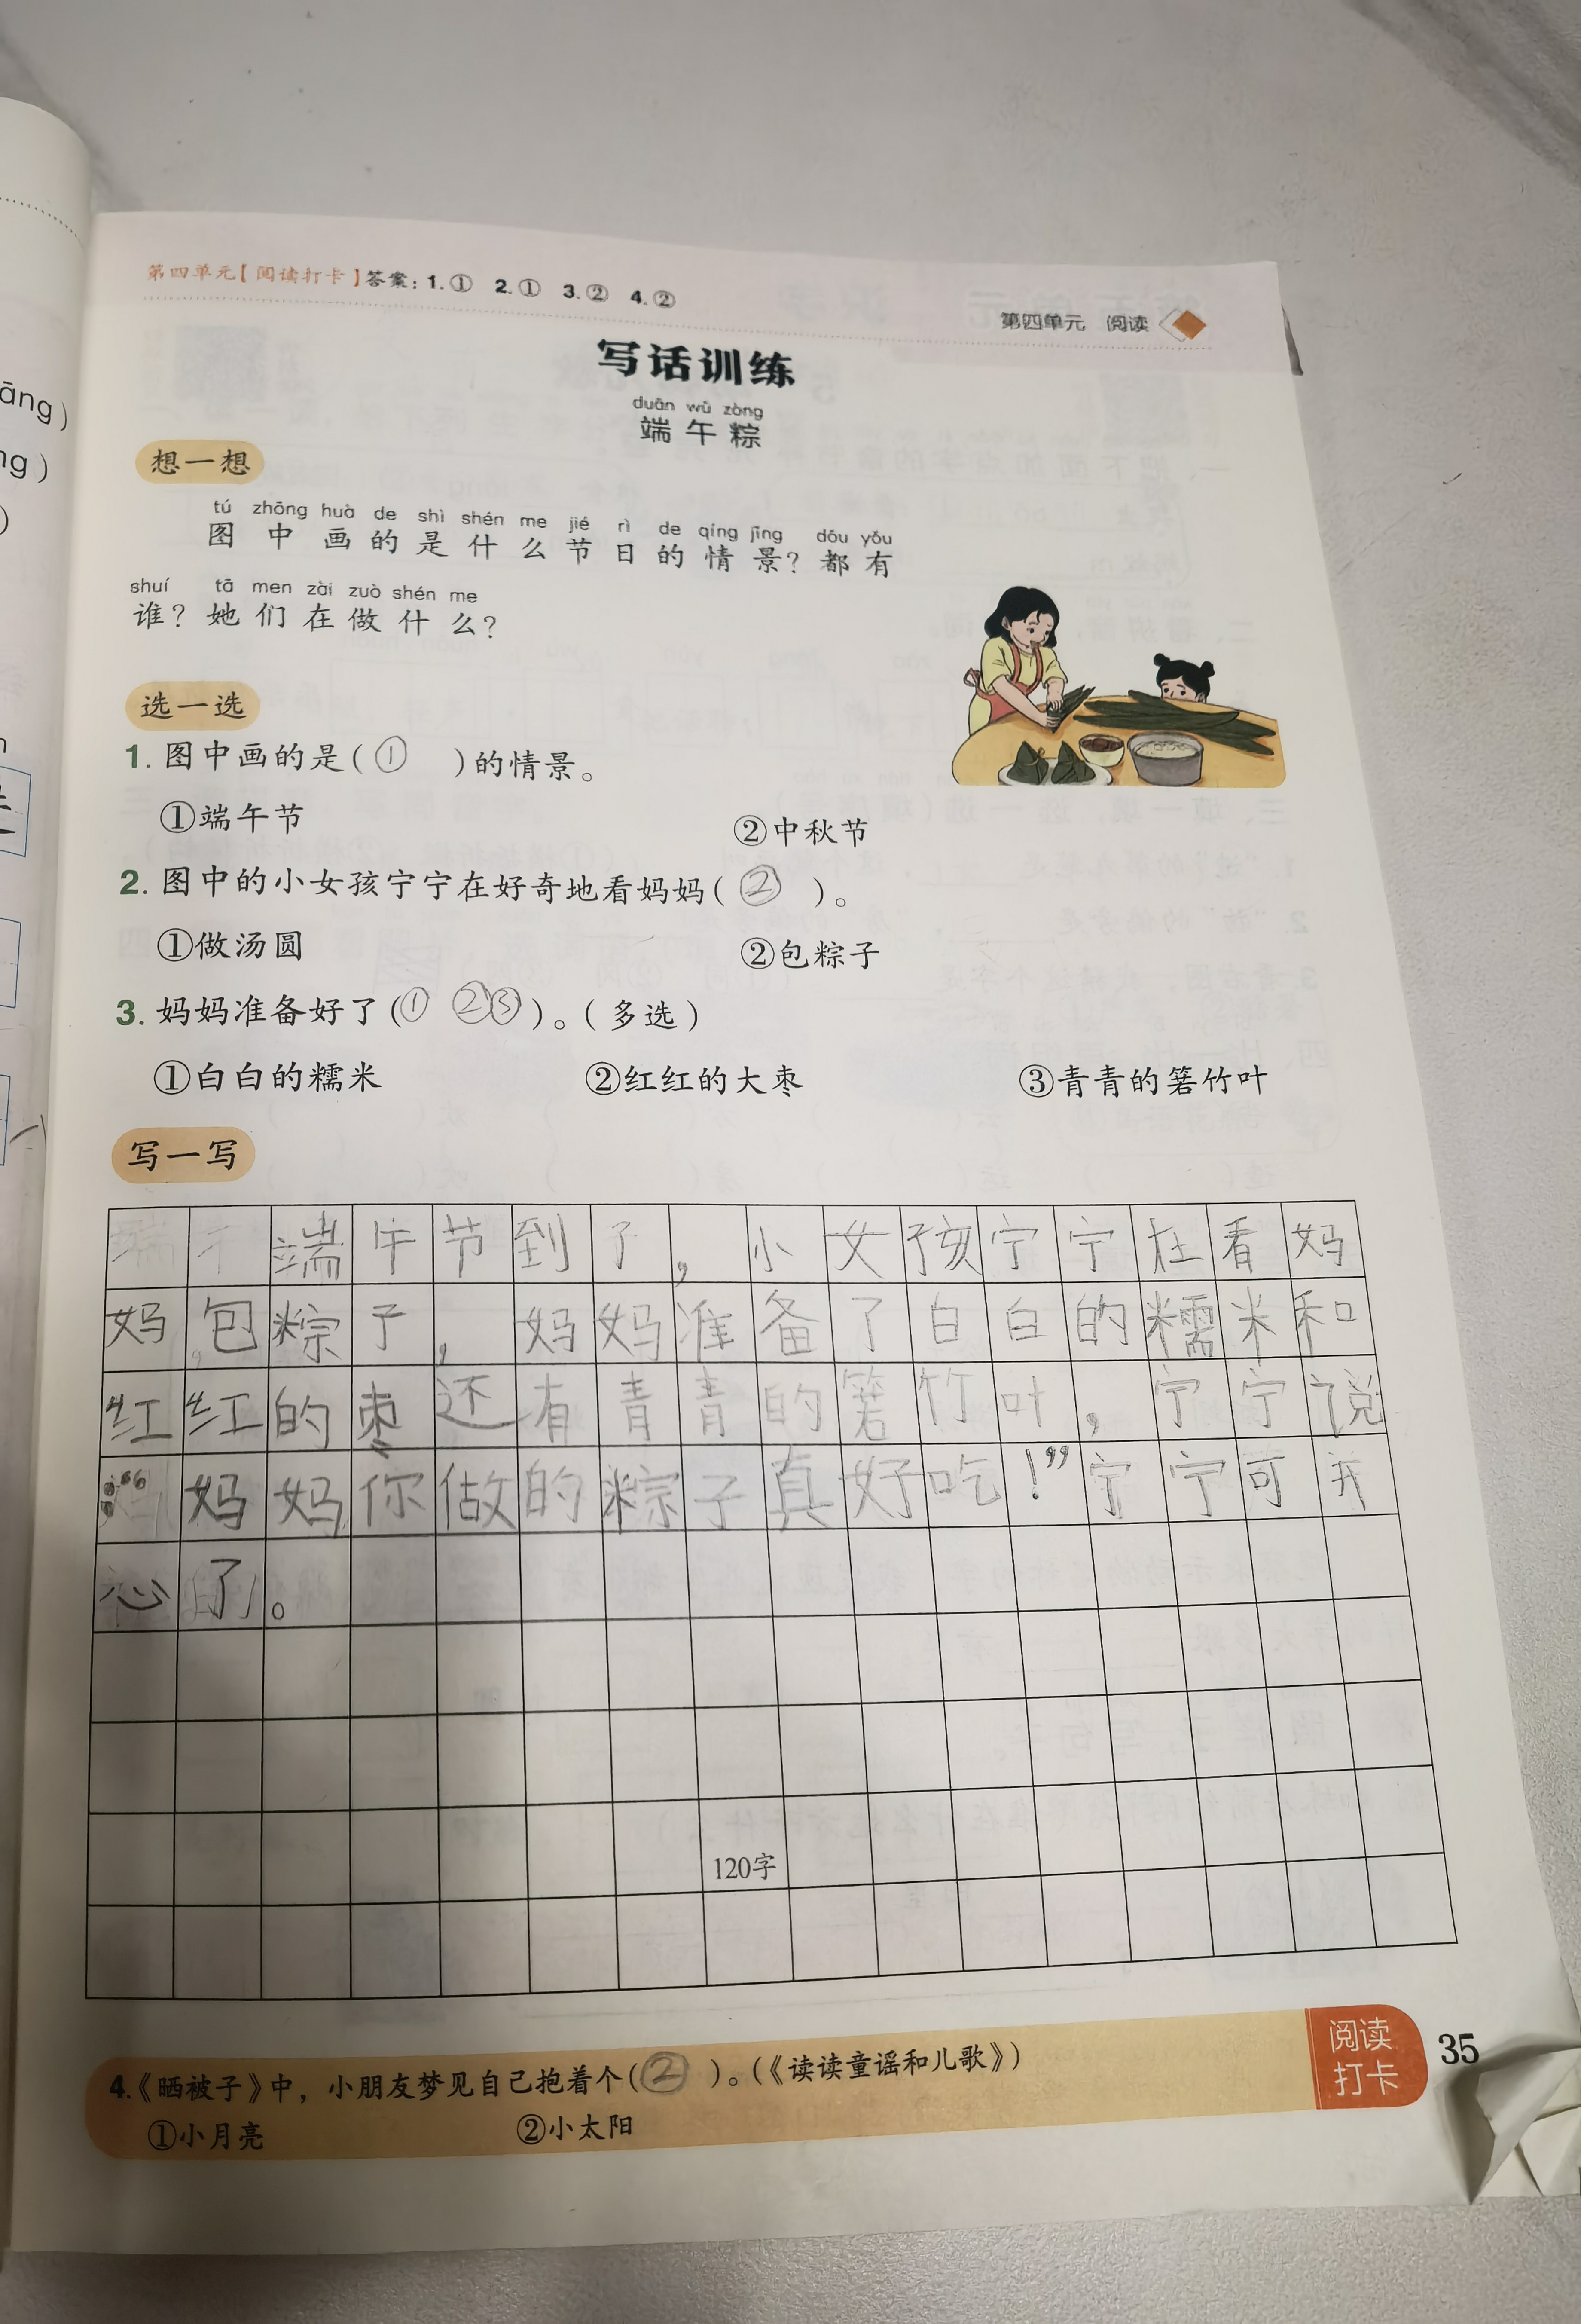 āng)
ng)
)
第四单元【阅读打卡】答案：1.① 2.① 3.② 4.②
第四单元 阅读
写话训练
duān wǔ zòng
端午粽
想一想
tú zhōng huà de shì shén me jié rì de qíng jǐng dōu yǒu
图中画的是什么节日的情景？都有
shuí tā men zài zuò shén me
谁？她们在做什么？
选一选
1. 图中画的是(①)的情景。
①端午节 ②中秋节
2. 图中的小女孩宁宁在好奇地看妈妈(②)。
①做汤圆 ②包粽子
3. 妈妈准备好了(①②③)。(多选)
①白白的糯米 ②红红的大枣 ③青青的箬竹叶
写一写
端午节到了，小女孩宁宁在看妈
妈包粽子，妈妈准备了白白的糯米和
红红的枣还有青青的箬竹叶，宁宁说
：“妈妈你做的粽子真好吃！”宁宁可开
心了。
120字
4.《晒被子》中，小朋友梦见自己抱着个(②)。(《读读童谣和儿歌》)
①小月亮 ②小太阳
阅读
打卡
35